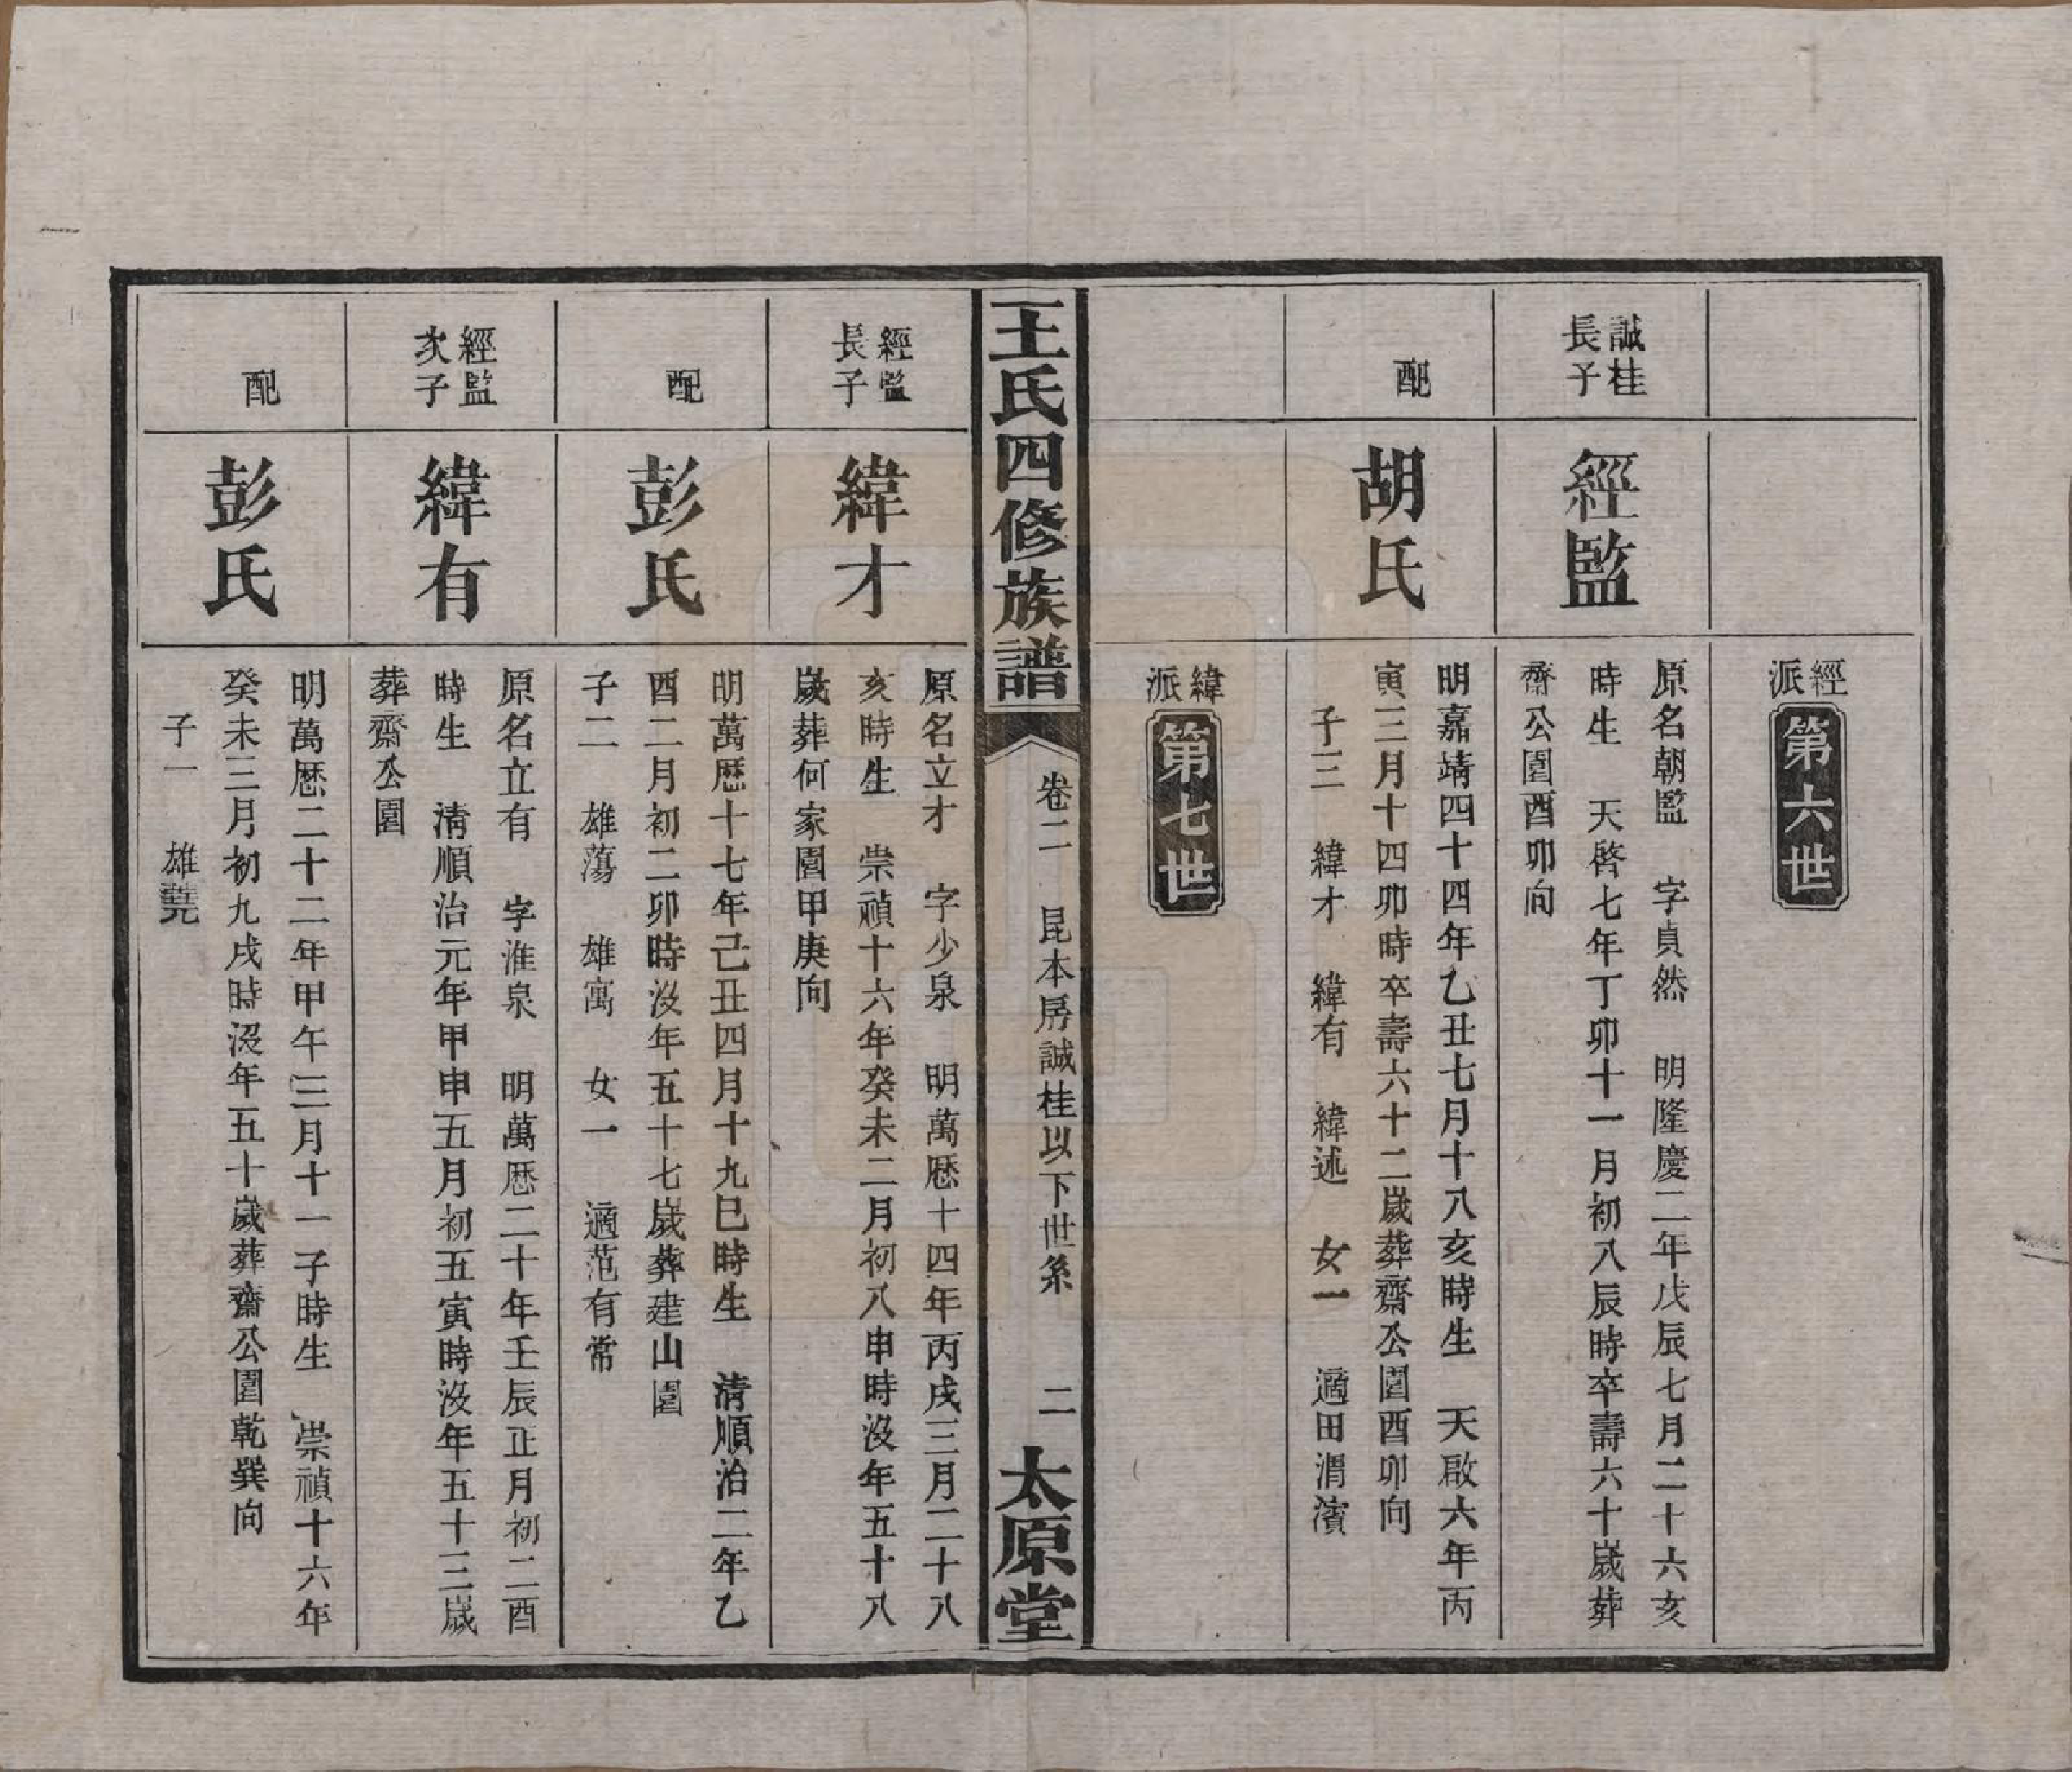 經派
第六世
誠桂長子
經監
原名朝監　字貞然　明隆慶二年戊辰七月二十六亥
時生　天啓七年丁卯十一月初八辰時卒壽六十歲葬
齋公園酉卯向
配
胡氏
明嘉靖四十四年乙丑七月十八亥時生　天啟六年丙
寅三月十四卯時卒壽六十二歲葬齋公園酉卯向
子三　緯才　緯有　緯述　女一　適田渭濱
緯派
第七世
王氏四修族譜
卷二　昆本房誠桂以下世系　二
太原堂
經監長子
緯才
原名立才　字少泉　明萬歷十四年丙戌三月二十八
亥時生　崇禎十六年癸未二月初八申時沒年五十八
歲葬何家園甲庚向
配
彭氏
明萬歷十七年己丑四月十九巳時生　清順治二年乙
酉二月初二卯時沒年五十七歲葬建山園
子二　雄蕩　雄寓　女一　適范有常
經監次子
緯有
原名立有　字淮泉　明萬歷二十年壬辰正月初二酉
時生　清順治元年甲申五月初五寅時沒年五十三歲
葬齋公園
配
彭氏
明萬歷二十二年甲午三月十一子時生　崇禎十六年
癸未三月初九戌時沒年五十歲葬齋公園乾巽向
子一　雄蕘